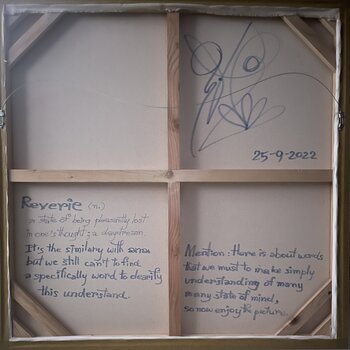 25-9-2022
Reverie (n.)
a state of being pleasantly lost
in one's thought; a daydream.
It's the similary with
but we still can't to find
a specifically word to clearify
this understand.
Mention: there is about words
that we must to make simply
understanding of many
many state of mind,
so now enjoy the picture.